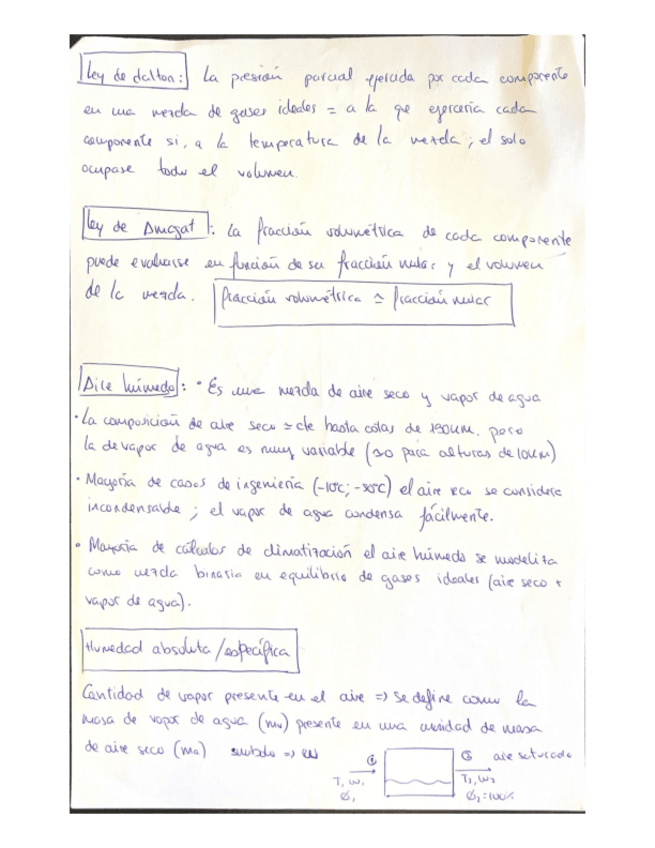 Ley de dalton: La presión parcial ejercida por cada componente
en una mezcla de gases ideales = a la que ejercería cada
componente si, a la temperatura de la mezcla; el solo
ocupase todo el volumen.
Ley de Amagat: La fracción volumétrica de cada componente
puede evaluarse en función de su fracción molar y el volumen
de la mezcla. fracción volumétrica ≃ fracción molar
Aire húmedo: • Es una mezcla de aire seco y vapor de agua
• La composición de aire seco ≃ cte hasta cotas de 190km. pero
la de vapor de agua es muy variable (≃0 para alturas de 10km)
• Mayoría de casos de ingeniería (-10ºc; -50ºc) el aire seco se considera
incondensable; el vapor de agua condensa fácilmente.
• Mayoría de cálculos de climatización el aire húmedo se modeliza
como mezcla binaria en equilibrio de gases ideales (aire seco +
vapor de agua).
Humedad absoluta/específica
Cantidad de vapor presente en el aire => Se define como la
masa de vapor de agua (mv) presente en una unidad de masa
de aire seco (ma) símbolo => w
① ② aire saturado
T, w₁ T₂, w₂
Ø₁ Ø₂=100%